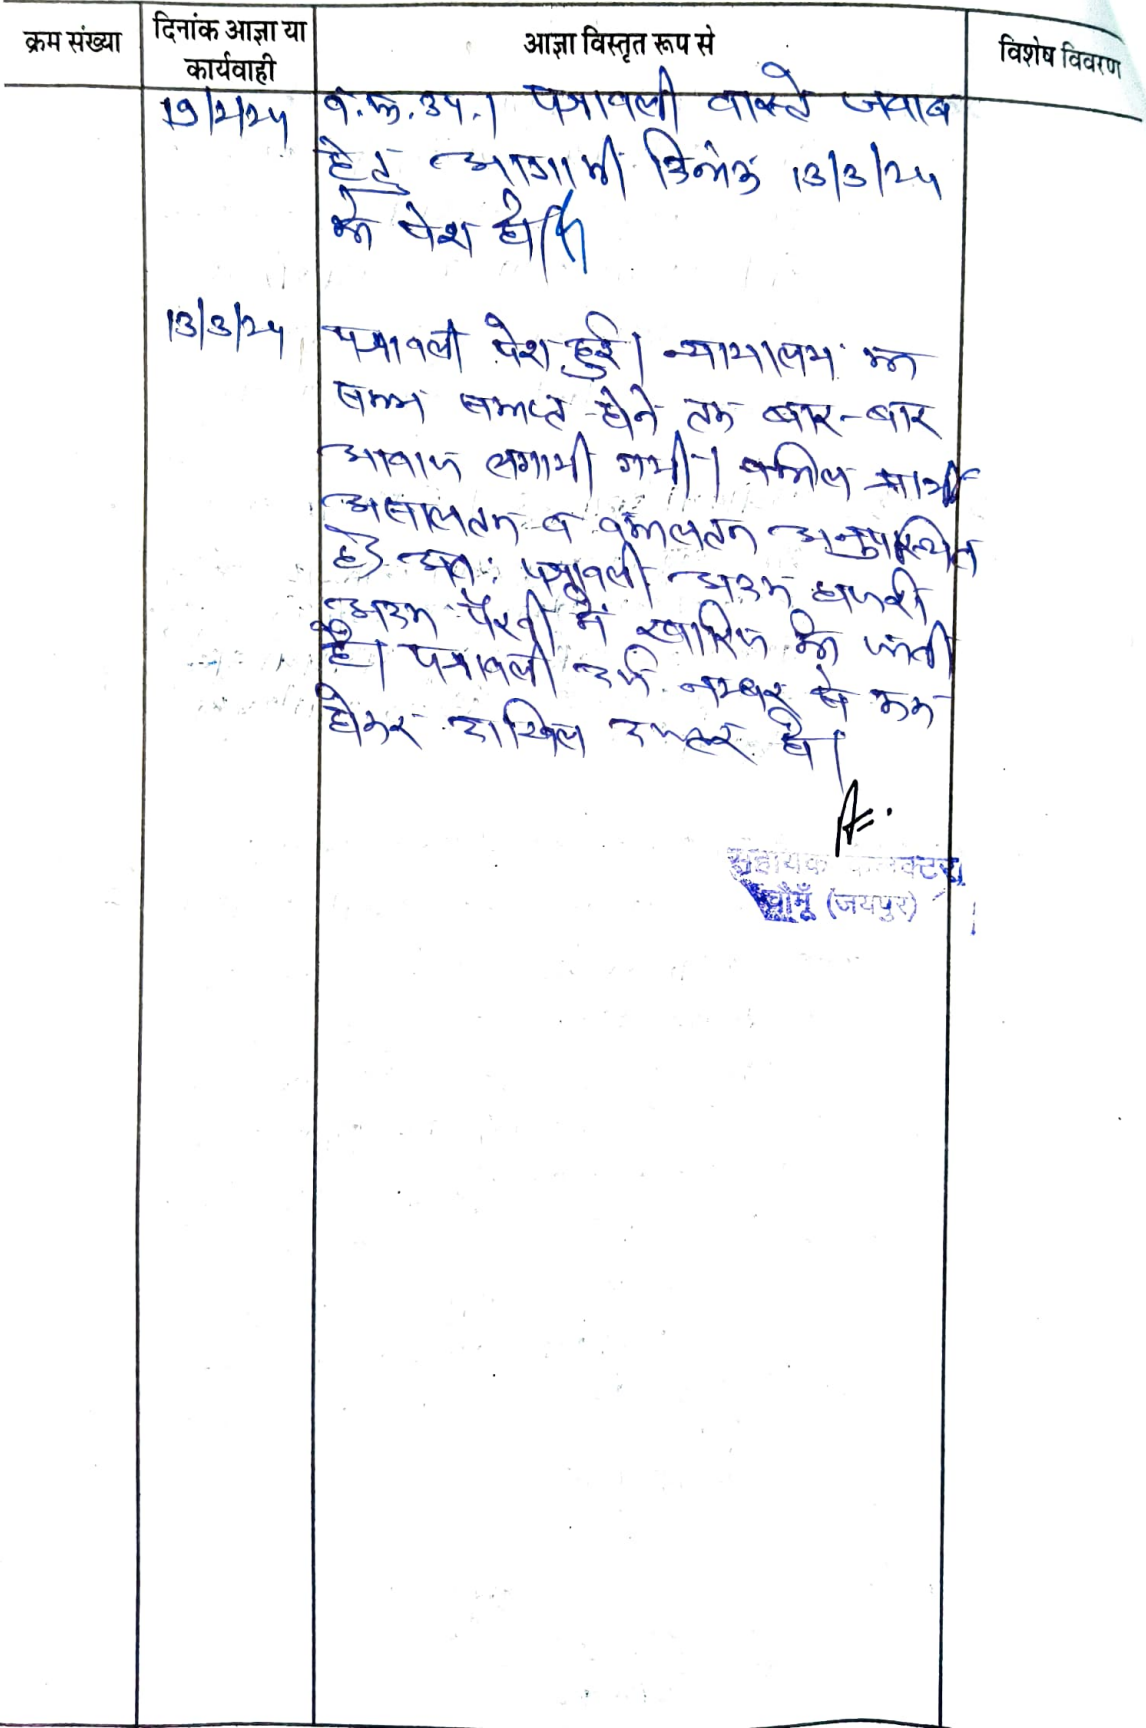 क्रम संख्या
दिनांक आज्ञा या
कार्यवाही
आज्ञा विस्तृत रूप से
विशेष विवरण
व.फ.उप.। पत्रावली वास्ते जवाब
हेतु आगामी दिनांक 13/3/24
को पेश हो।
13/3/24
पत्रावली पेश हुई। न्यायालय का
समय समाप्त होने तक बार-बार
आवाज लगायी गयी। वकील प्रार्थी
असालतन व वकालतन अनुपस्थित
है अतः पत्रावली अदम हाजरी
अदम पैरवी में खारिज की जाती
है। पत्रावली दर्ज नम्बर से कम
होकर दाखिल दफ्तर हो।
सहायक कलक्टर
चौमूँ (जयपुर)